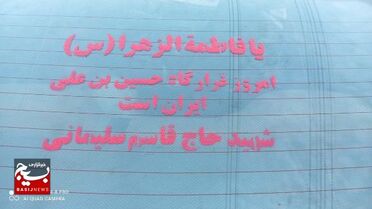 یا فاطمة الزهرا (س)
امروز قرارگاه حسین بن علی
ایران است
شهید حاج قاسم سلیمانی
خبرگزاری
بسیج
BASIJNEWS
AI QUAD CAMERA